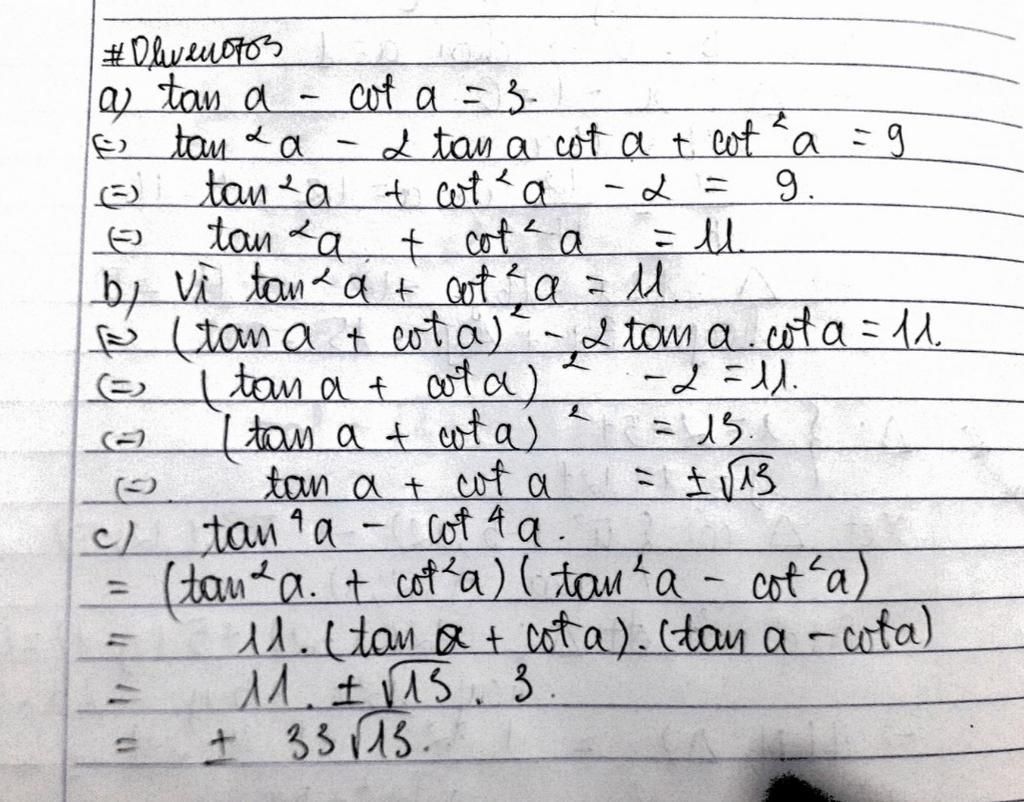 #Dluven0703
a) tan a - cot a = 3
(=) tan²a - 2 tan a cot a + cot²a = 9
(=) tan²a + cot²a - 2 = 9.
(=) tan²a + cot²a = 11.
b) Vì tan²a + cot²a = 11
(=) (tan a + cot a)² - 2 tan a . cot a = 11.
(=) (tan a + cot a)² - 2 = 11.
(=) (tan a + cot a)² = 13.
(=) tan a + cot a = ±√13
c) tan⁴a - cot⁴a.
= (tan²a. + cot²a) (tan²a - cot²a)
= 11. (tan a + cot a). (tan a - cot a)
= 11. ±√13. 3.
= ± 33√13.